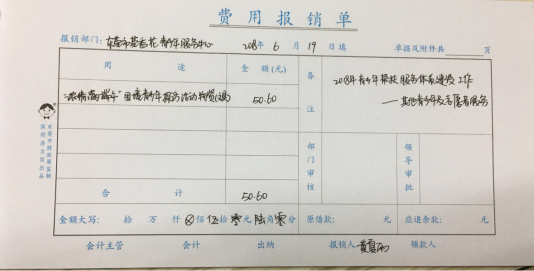 费用报销单
报销部门：东莞市茉香花青少年服务中心 2018年 6 月 19 日填 单据及附件共 页
用 途 金 额(元) 备注 2018年青少年帮扶服务体系建设工作
——其他青少年及志愿者服务
"浓情 端午"困境青少年探访活动物资 50.60
部门审核 领导审批
合 计 50.60
金额大写： 拾 万 仟 ⊗佰 伍拾 零元 陆角 零分 原借款： 元 应退余款： 元
会计主管 会计 出纳 报销人：黄 领款人